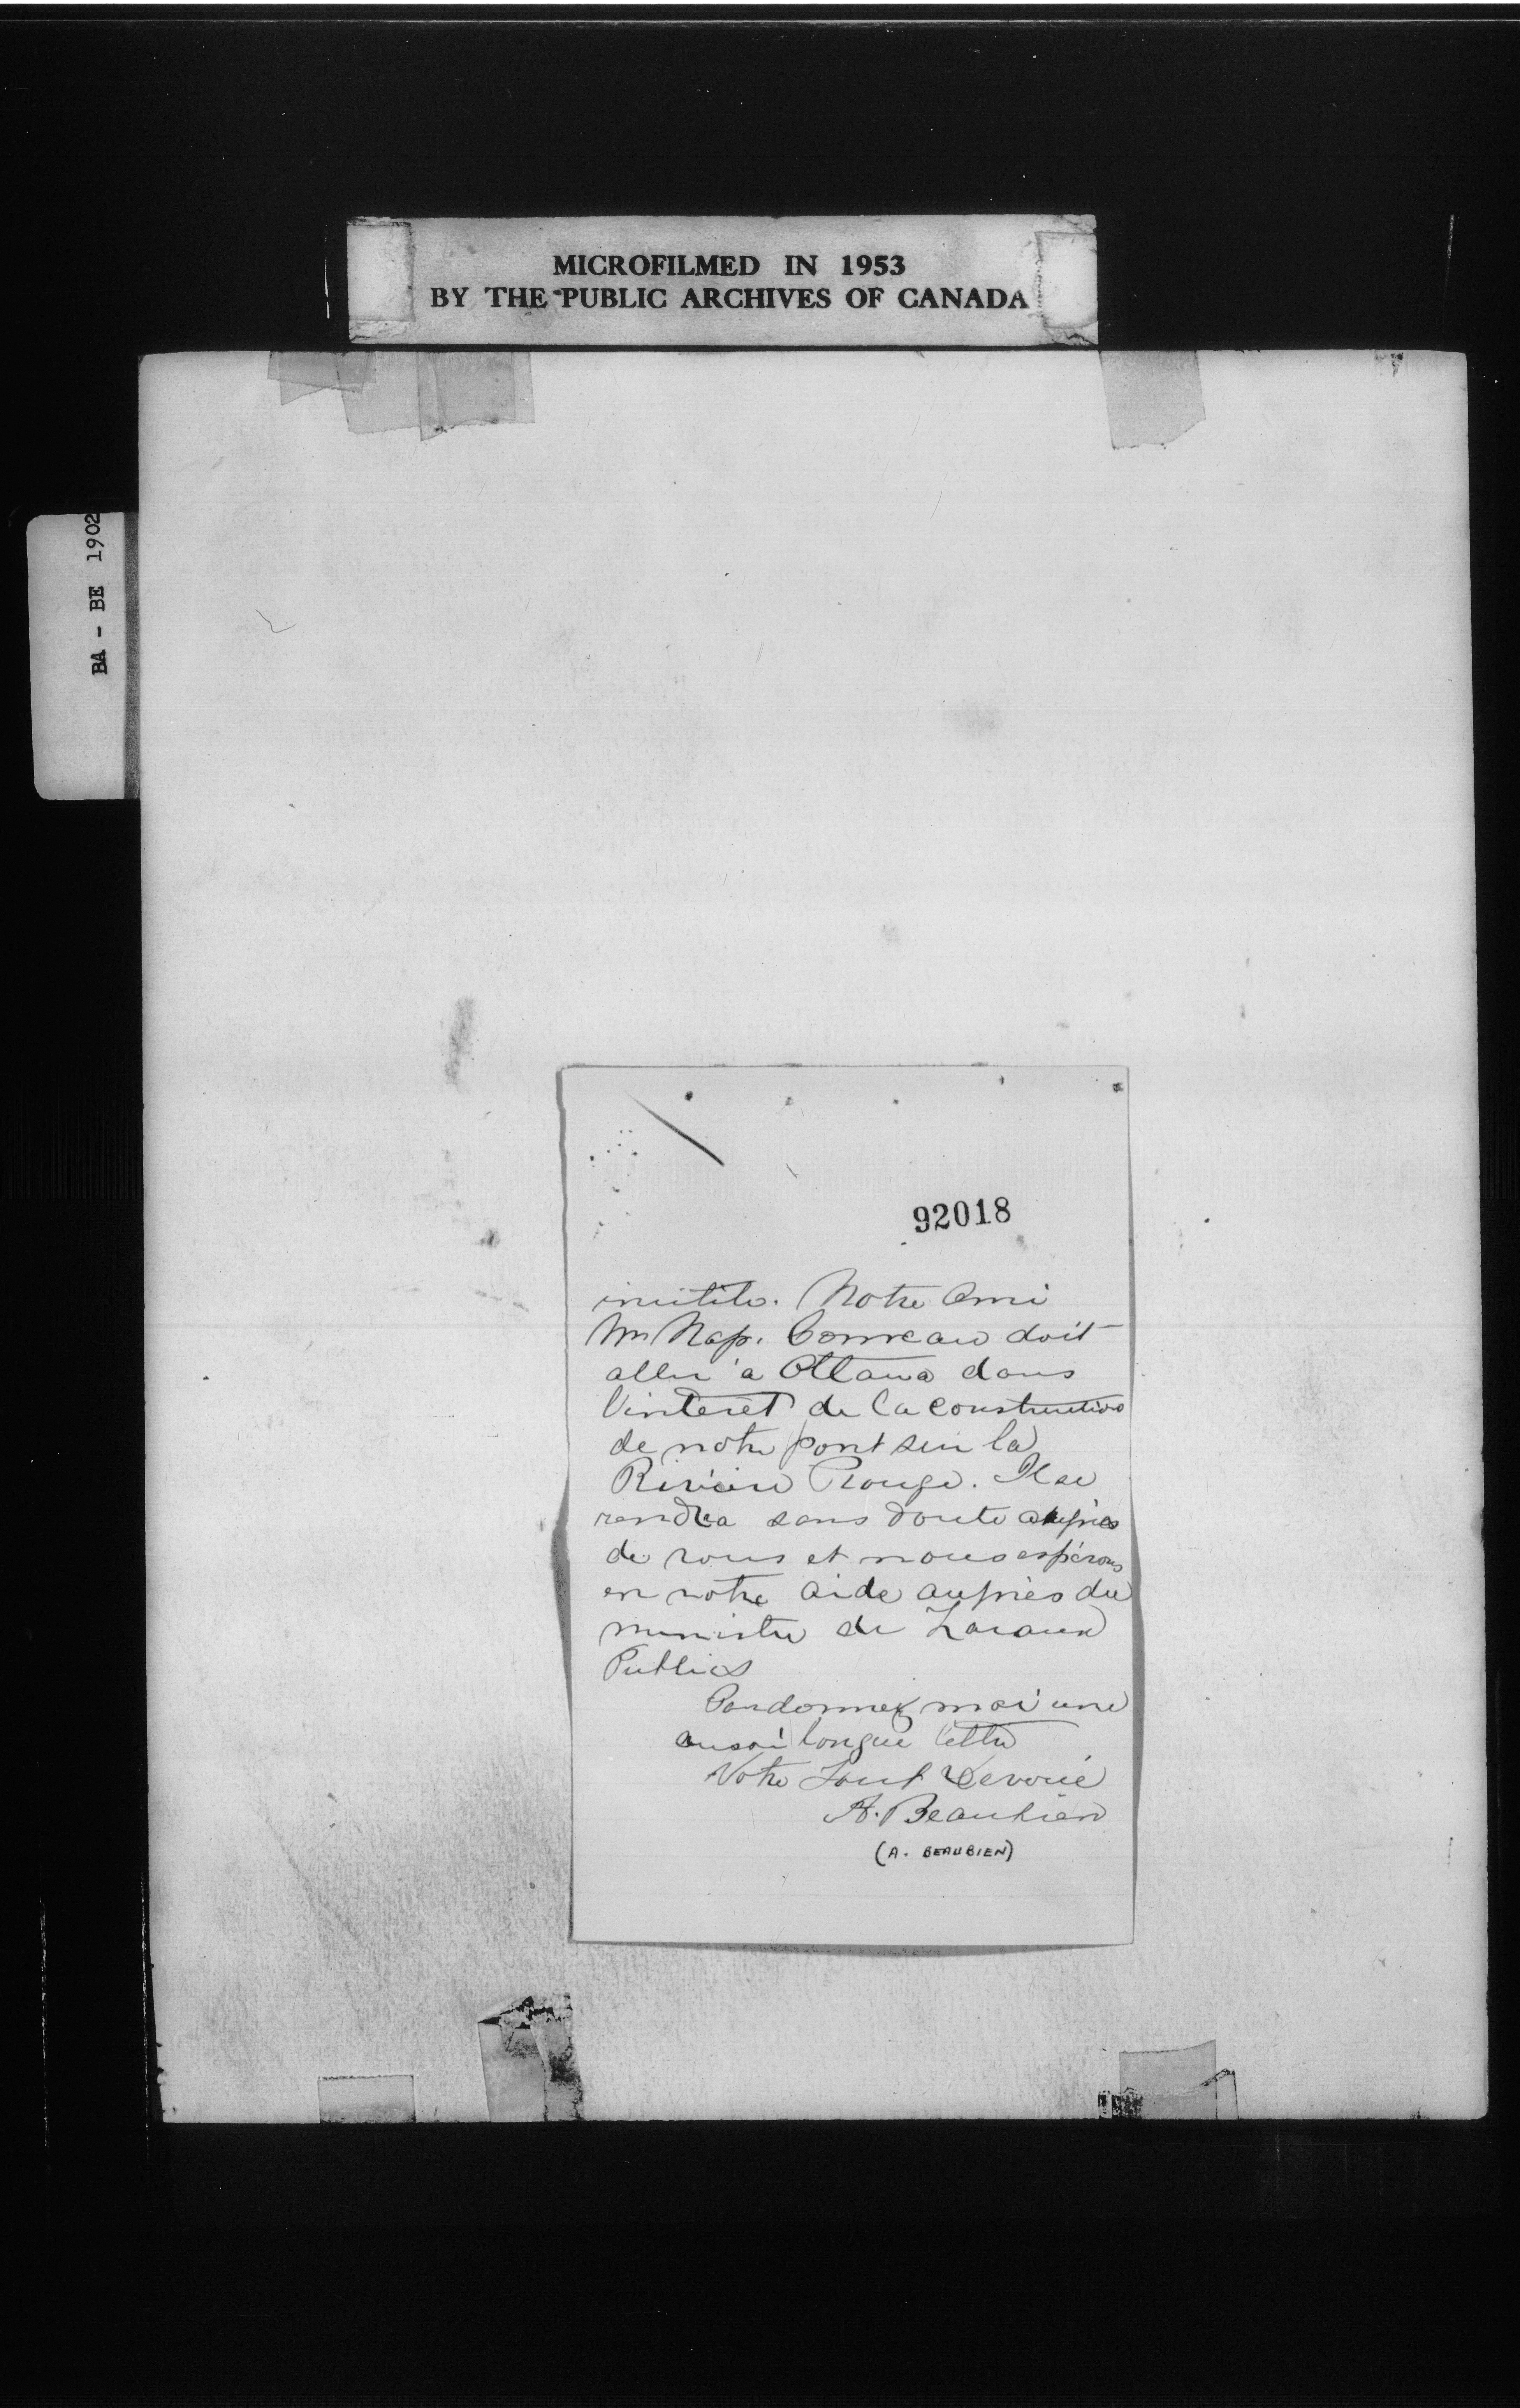 MICROFILMED IN 1953
BY THE PUBLIC ARCHIVES OF CANADA
BA - BE 1902
92018
inutile. Notre Ami
Mr Nap. Comeau doit
aller à Ottawa dans
l'interêt de la construction
de notre pont sur la
Rivière Rouge. Il se
rendra sans doute auprès
de vous et nous espérons
en votre aide auprès du
ministre de Travaux
Publics
Pardonnez moi une
aussi longue lettre
Votre Tout Devoué
A. Beaubien
(A. BEAUBIEN)